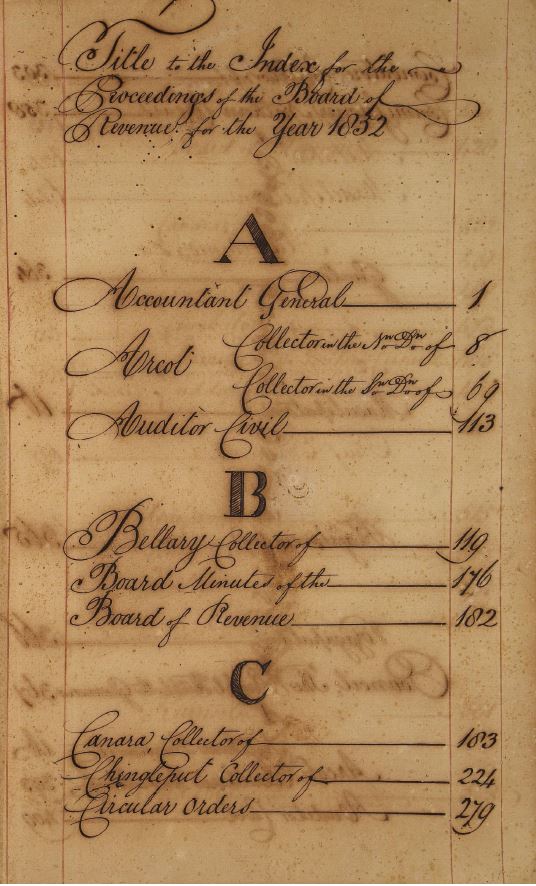 Title to the Index for the
Proceedings of the Board of
Revenue for the Year 1832
A
Accountant General 1
Arcot Collector in the Nn Dn of 8
Collector in the Sn Dn of 69
Auditor Civil 113
B
Bellary Collector of 119
Board Minutes of the 176
Board of Revenue 182
C
Canara, Collector of 183
Chingleput Collector of 224
Circular Orders 279